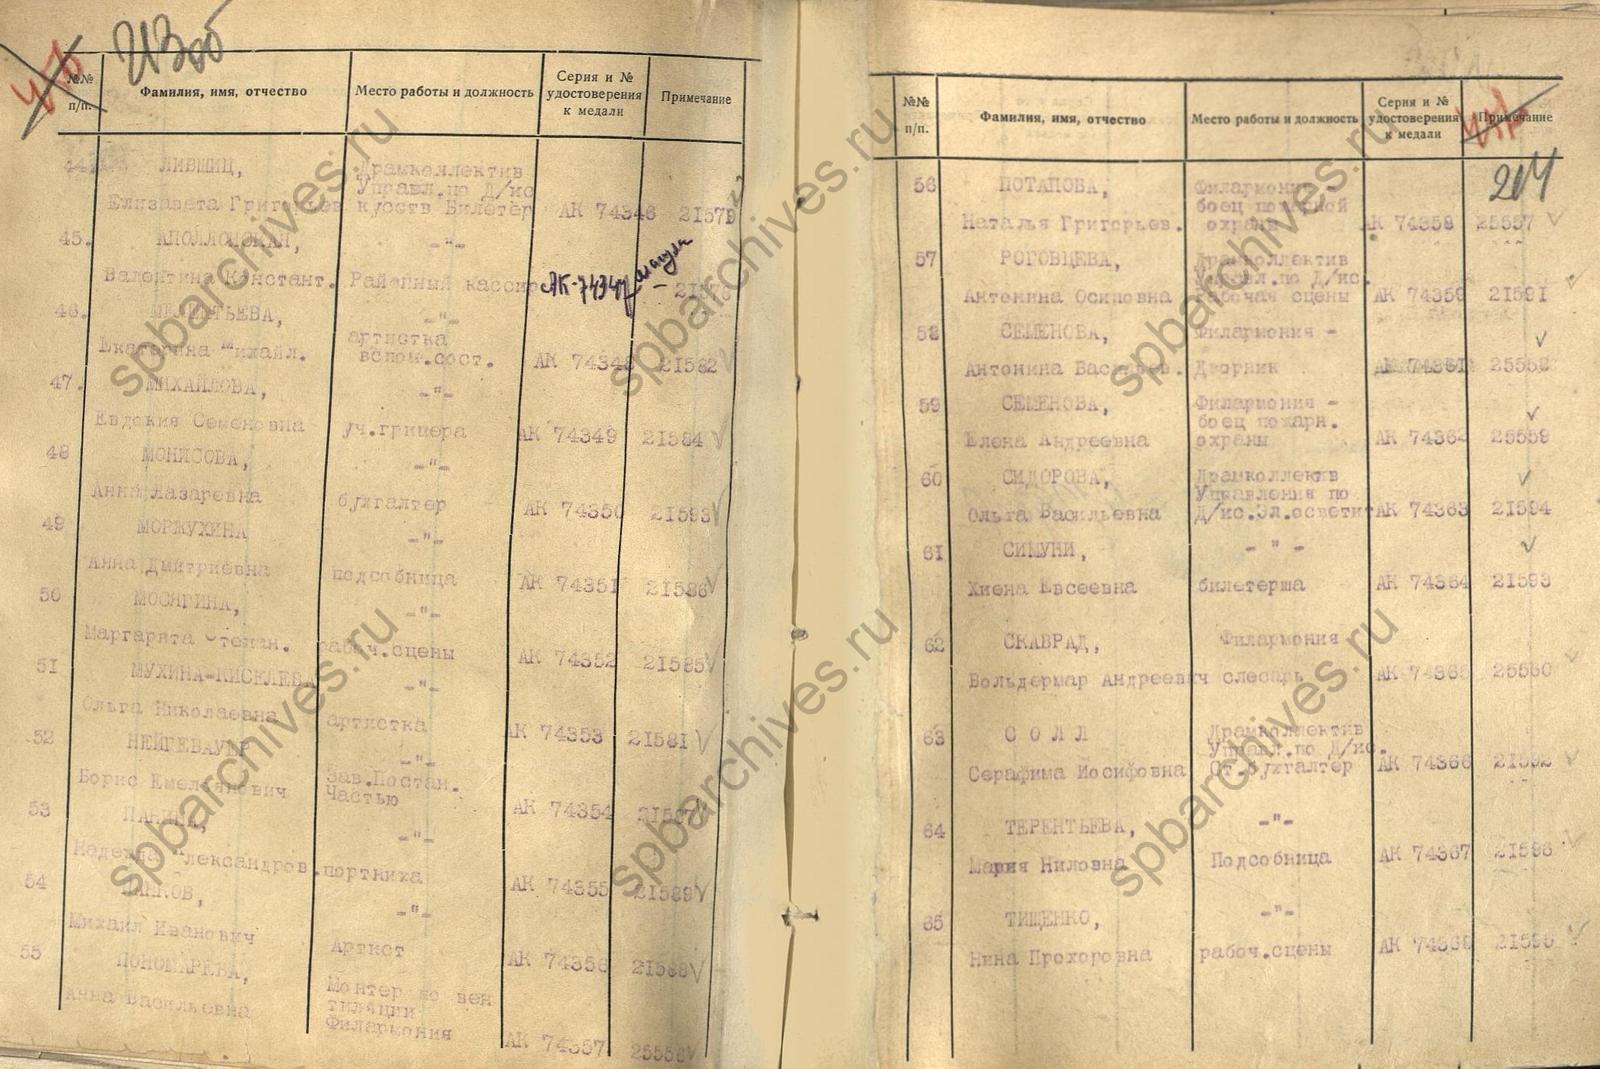 Изоб
№№ п/п.
Фамилия, имя, отчество
Место работы и должность
Серия и № удостоверения к медали
Примечание
44. ЛИВШИЦ, Драмколлектив
Управл.по Д/ис
Елизавета Григорьев кусств Билетер АК 74346 21579
45. АПОЛЛОНСКАЯ, -"-
Валентина Констант. Районный кассир АК-74347 21578
46. -"-
Екатерина Михайл. артистка
вспом.сост. АК 74348 21582
47. МИХАЙЛОВА, -"-
Евдокия Семеновна уч.гримера АК 74349 21584
48 МОНИСОВА, -"-
Анна Лазаревна бухгалтер АК 74350 21593
49 МОРЖУХИНА -"-
Анна Дмитриевна подсобница АК 74351 21586
50 МОСЯГИНА, -"-
Маргарита Степан. рабоч.сцены АК 74352 21585
51 МУХИНА-КИСЕЛЕВА -"-
Ольга Николаевна артистка АК 74353 21581
52 НЕЙГЕБАУЕР -"-
Борис Емельянович Зав.Постан.
Частью АК 74354 21587
53 ПАНИНА, -"-
Надежда Александров. портниха АК 74355 21589
54 ПАНКОВ, -"-
Михаил Иванович Артист АК 74356 21588
55 ПОНОМАРЕВА, Монтер по вен
тиляции
Анна Васильевна Филармония АК 74357 25556
№№ п/п.
Фамилия, имя, отчество
Место работы и должность
Серия и № удостоверения к медали
Примечание
204
56 ПОТАПОВА, Филармония -
боец пожарной
Наталья Григорьев. охраны АК 74358 25557
57 РОГОВЦЕВА, Драмколлектив
Управл.по Д/ис.
Антонина Осиповна рабочая сцены АК 74359 21591
58 СЕМЕНОВА, Филармония -
Антонина Васильев. Дворник АК 74361 25558
59 СЕМЕНОВА, Филармония -
боец пожарн.
Елена Андреевна охраны АК 74362 25559
60 СИДОРОВА, Драмколлектив
Управления по
Ольга Васильевна Д/ис.Эл.осветит АК 74363 21594
61 СИМУНИ, - " -
Хиена Евсеевна билетерша АК 74364 21593
62 СКАВРАД, Филармония
Вольдермар Андреевич слесарь АК 74365 25560
63 С О Л Л Драмколлектив
Управл.по Д/ис.
Серафима Иосифовна Ст.бухгалтер АК 74366 21592
64 ТЕРЕНТЬЕВА, -"-
Мария Ниловна Подсобница АК 74367 21596
65 ТИЩЕНКО, -"-
Нина Прохоровна рабоч.сцены АК 74369 21595
spbarchives.ru
spbarchives.ru
spbarchives.ru
spbarchives.ru
spbarchives.ru
spbarchives.ru